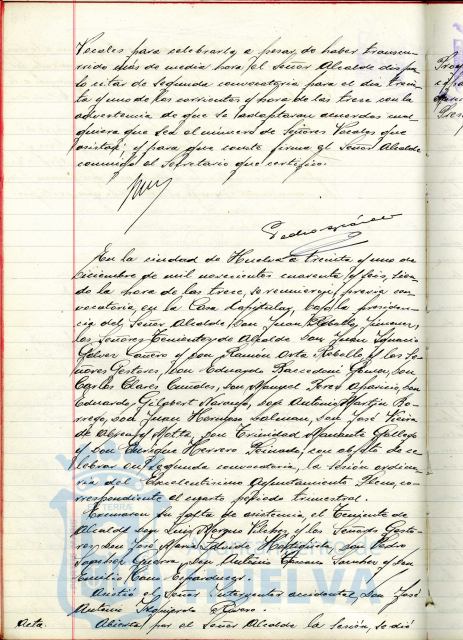 Vocales para celebrarla, a pesar de haber transcu-
rrido más de media hora el Señor Alcalde dispu-
so citar de segunda convocatoria para el día trein-
ta y uno de los corrientes y hora de las trece con la
advertencia de que se adoptaran acuerdos cual
quiera que sea el número de Señores Vocales que
asistan; y para que conste firma el Señor Alcalde
conmigo el Secretario que certifico.
En la ciudad de Huelva a treinta y uno de
diciembre de mil novecientos cuarenta y seis, sien-
do la hora de las trece, se reunieron, previa con-
vocatoria, en la Casa Capitular, bajo la presiden-
cia del Señor Alcalde Don Juan Rebollo Jimenez,
los Señores Tenientes de Alcalde Don Juan Ignacio
Galvez Cañero y Don Ramón Orta Rebollo y los Se-
ñores Gestores, Don Eduardo Baccedoni Gomez, Don
Carlos Clares Don Manuel Perez Aparicio, Don
Eduardo Gilabert Naranjo, Don Antonio Martin Bo-
rrego, Don Juan Hermoso Don José Vieira
de Abreu y Motta, Don Trinidad Gallego
y Don Enrique Herrero Peinado, con objeto de ce-
lebrar en segunda convocatoria, la sesión ordina-
ria del Excelentisimo Ayuntamiento Pleno, co-
rrespondiente al cuarto periodo trimestral.
Excusaron su falta de asistencia, el Teniente de
Alcalde Don Luis y los Señores Gesto-
res, Don José Don Pedro
Sanchez Guerra, Don Antonio Sanchez y Don
Emilio Cano
Asistió el Señor Interventor accidental, Don José
Antonio Izquierdo Rivero.
Acta. Abierta por el Señor Alcalde la sesión, se dió
TERRA
HUELVA